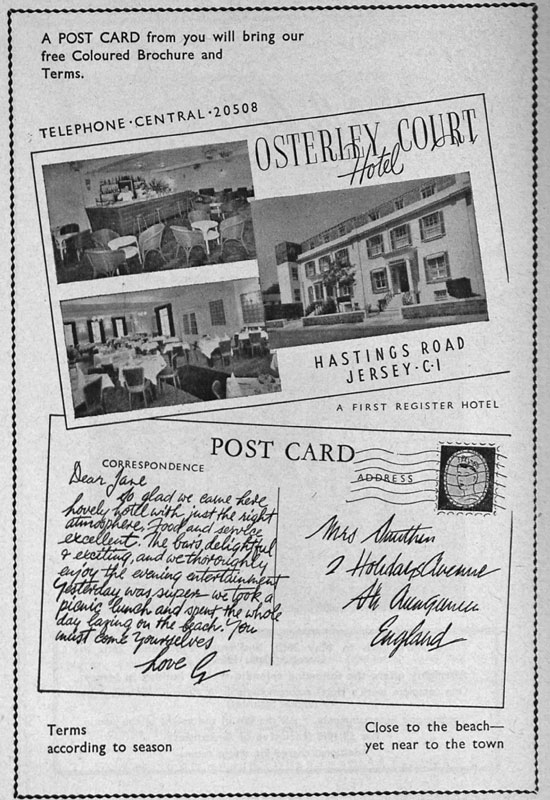 A POST CARD from you will bring our
free Coloured Brochure and
Terms.
TELEPHONE·CENTRAL·20508
OSTERLEY COURT
Hotel
HASTINGS ROAD
JERSEY·C·I
A FIRST REGISTER HOTEL
POST CARD
CORRESPONDENCE
ADDRESS
Dear Jane
So glad we came here
lovely hotel with just the right
atmosphere. Food and service
excellent. The bar's delightful
& exciting, and we thoroughly
enjoy the evening entertainment
Yesterday was super - we took a
picnic lunch and spent the whole
day lazing on the beach. You
must come yourselves
Love
Mrs
2 Holiday Avenue
England
Terms
according to season
Close to the beach—
yet near to the town